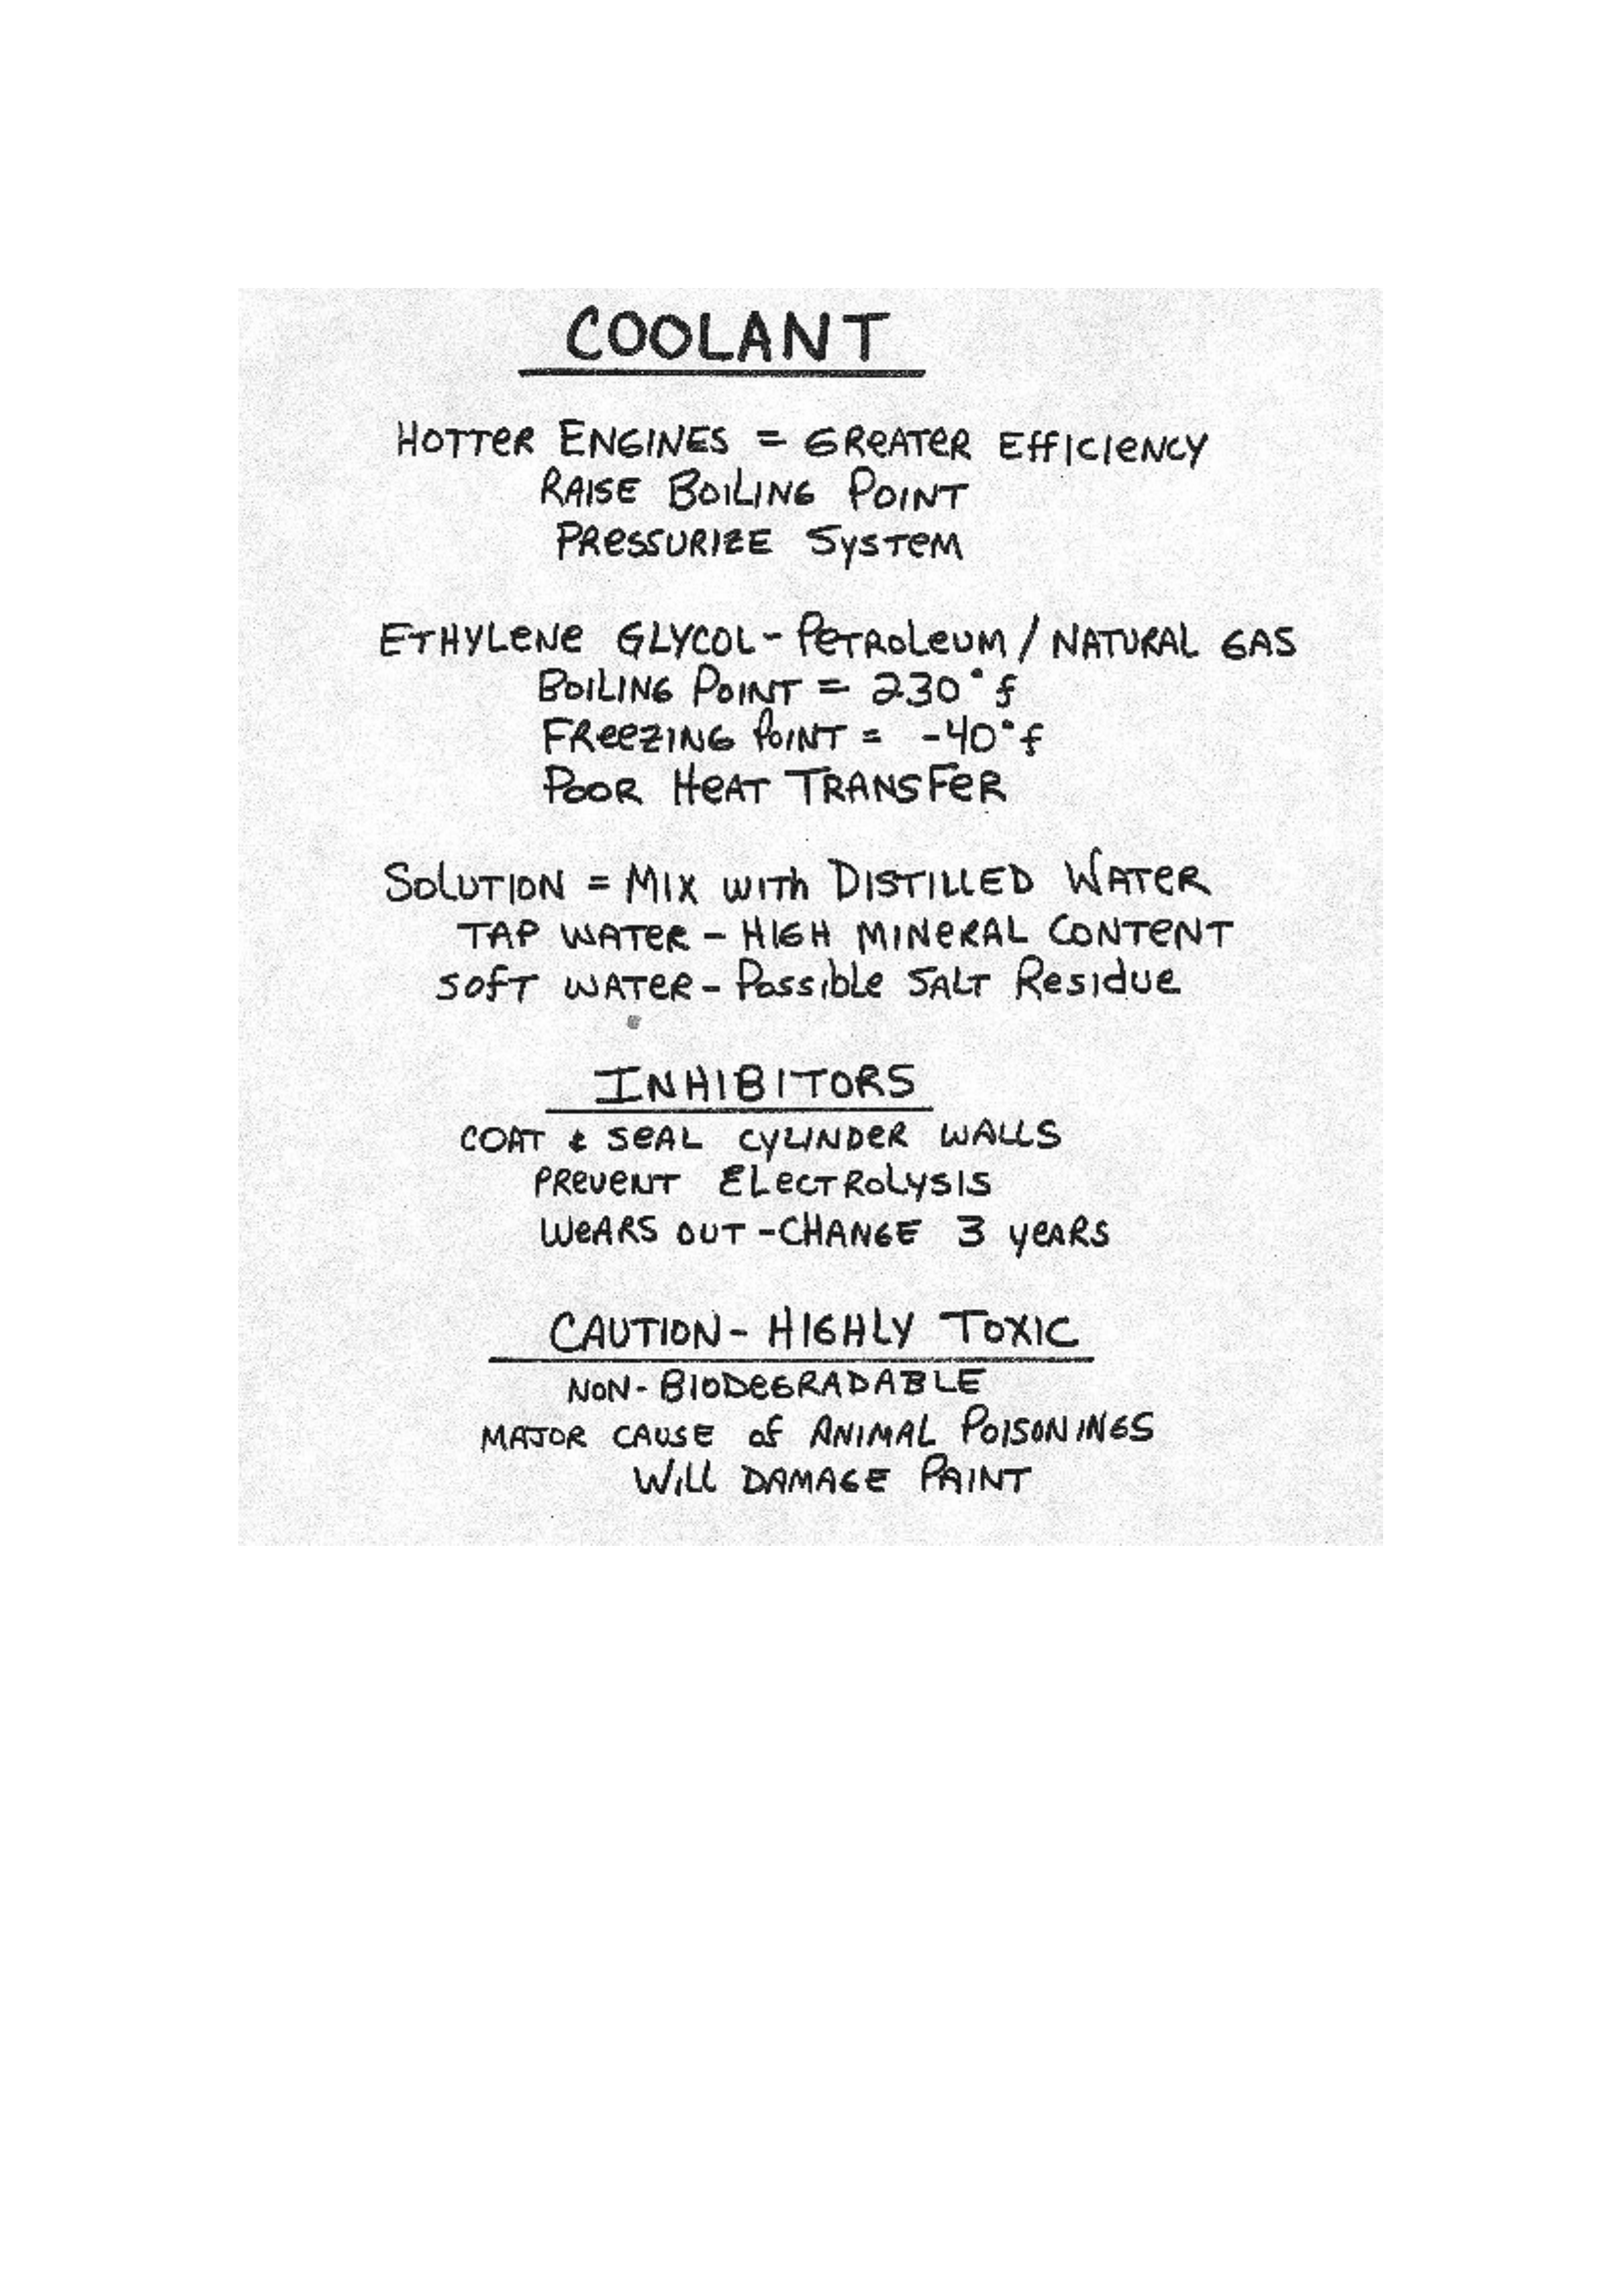 COOLANT
HOTTER ENGINES = GREATER EFFICIENCY
RAISE BOILING POINT
PRESSURIZE SYSTEM
ETHYLENE GLYCOL - PETROLEUM / NATURAL GAS
BOILING POINT = 230°f
FREEZING POINT = -40°f
POOR HEAT TRANSFER
SOLUTION = MIX with DISTILLED WATER
TAP WATER - HIGH MINERAL CONTENT
SOFT WATER - Possible SALT Residue
INHIBITORS
COAT & SEAL CYLINDER WALLS
PREVENT ELECTROLYSIS
WEARS OUT - CHANGE 3 YEARS
CAUTION - HIGHLY TOXIC
NON-BIODEGRADABLE
MAJOR CAUSE of ANIMAL POISONINGS
Will DAMAGE PAINT